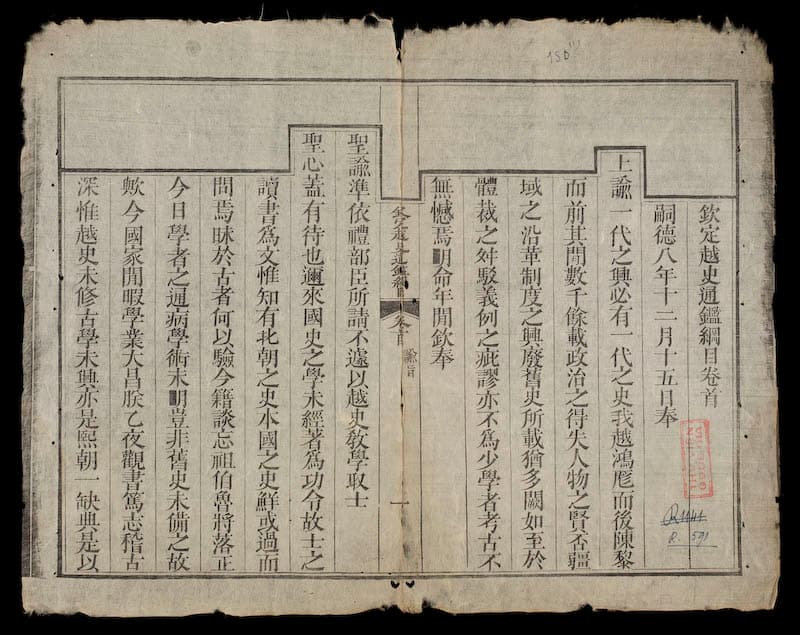 150
欽定越史通鑑綱目卷首
嗣德八年十二月十五日奉
上諭一代之興必有一代之史我越鴻厖而後陳黎
而前其閒數千餘載政治之得失人物之賢否疆
域之沿革制度之興廢舊史所載猶多闕如至於
體裁之舛駁義例之疵謬亦不爲少學者考古不
無憾焉明命年閒欽奉
欽定越史通鑑綱目 卷首 諭旨 一
聖諭準依禮部臣所請不遽以越史敎學取士
聖心蓋有待也邇來國史之學未經著爲功令故士之
讀書爲文惟知有北朝之史本國之史鮮或過而
問焉昧於古者何以驗今籍談忘祖伯魯將落正
今日學者之通病學術未明豈非舊史未備之故
歟今國家閒暇學業大昌朕乙夜觀書篤志稽古
深惟越史未修古學未興亦是熙朝一缺典是以
R.1141
R. 591